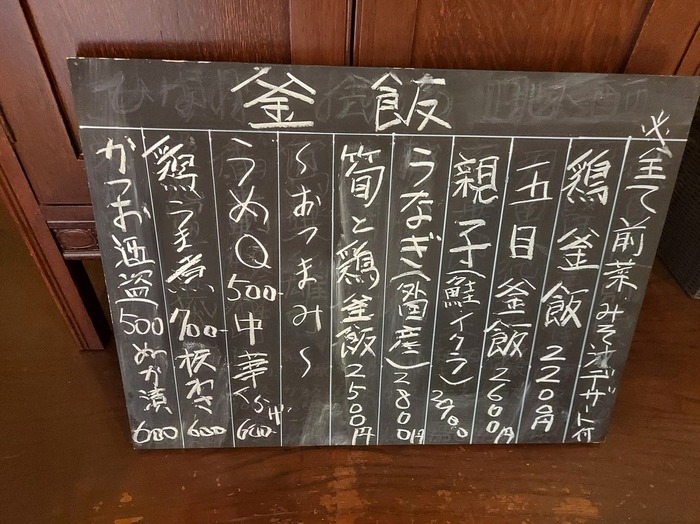 釜飯
※全て前菜みそ汁デザート付
鶏釜飯 2200円
五目釜飯 2600円
親子(鮭イクラ)
うなぎ(外国産) 2800円
筍と鶏釜飯 2500円
～おつまみ～
うめQ 500- 中華くらげ 600
鶏うま煮 700- 板わさ 600
かつお酒盗 500 ぬか漬 600